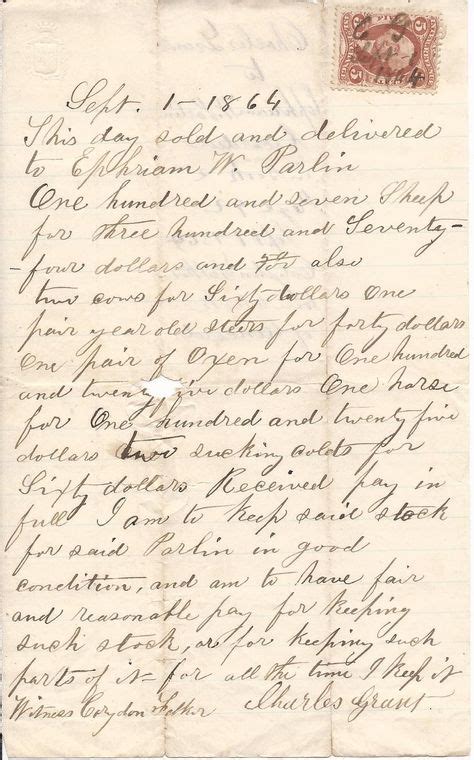 Sept. 1 - 1864
This day sold and delivered
to Ephriam W. Parlin
One hundred and seven Sheep
for three hundred and Seventy-
-four dollars and also
two cows for Sixty dollars One
pair year old steers for forty dollars
One pair of Oxen for One hundred
and twenty five dollars One horse
for One hundred and twenty five
dollars two sucking colts for
Sixty dollars Received pay in
full I am to keep said stock
for said Parlin in good
condition, and am to have fair
and reasonable pay for keeping
such stock, or for keeping such
parts of it for all the time I keep it
Witness Corydon Felker Charles Grant.
5 5